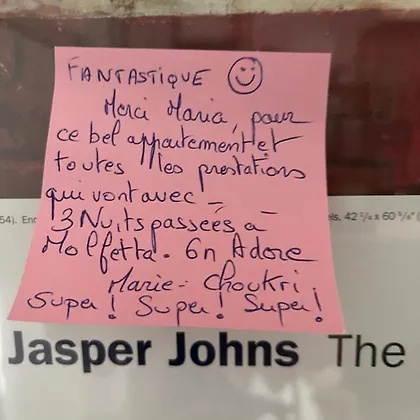 FANTASTIQUE
Merci Maria, pour
ce bel appartement et
toutes les prestations
qui vont avec -
3 Nuits passées à
Molfetta. On Adore
Marie-Choukri.
Super! Super! Super!
54). Enc
els, 42 2/4 x 60 5/8" (
Jasper Johns The